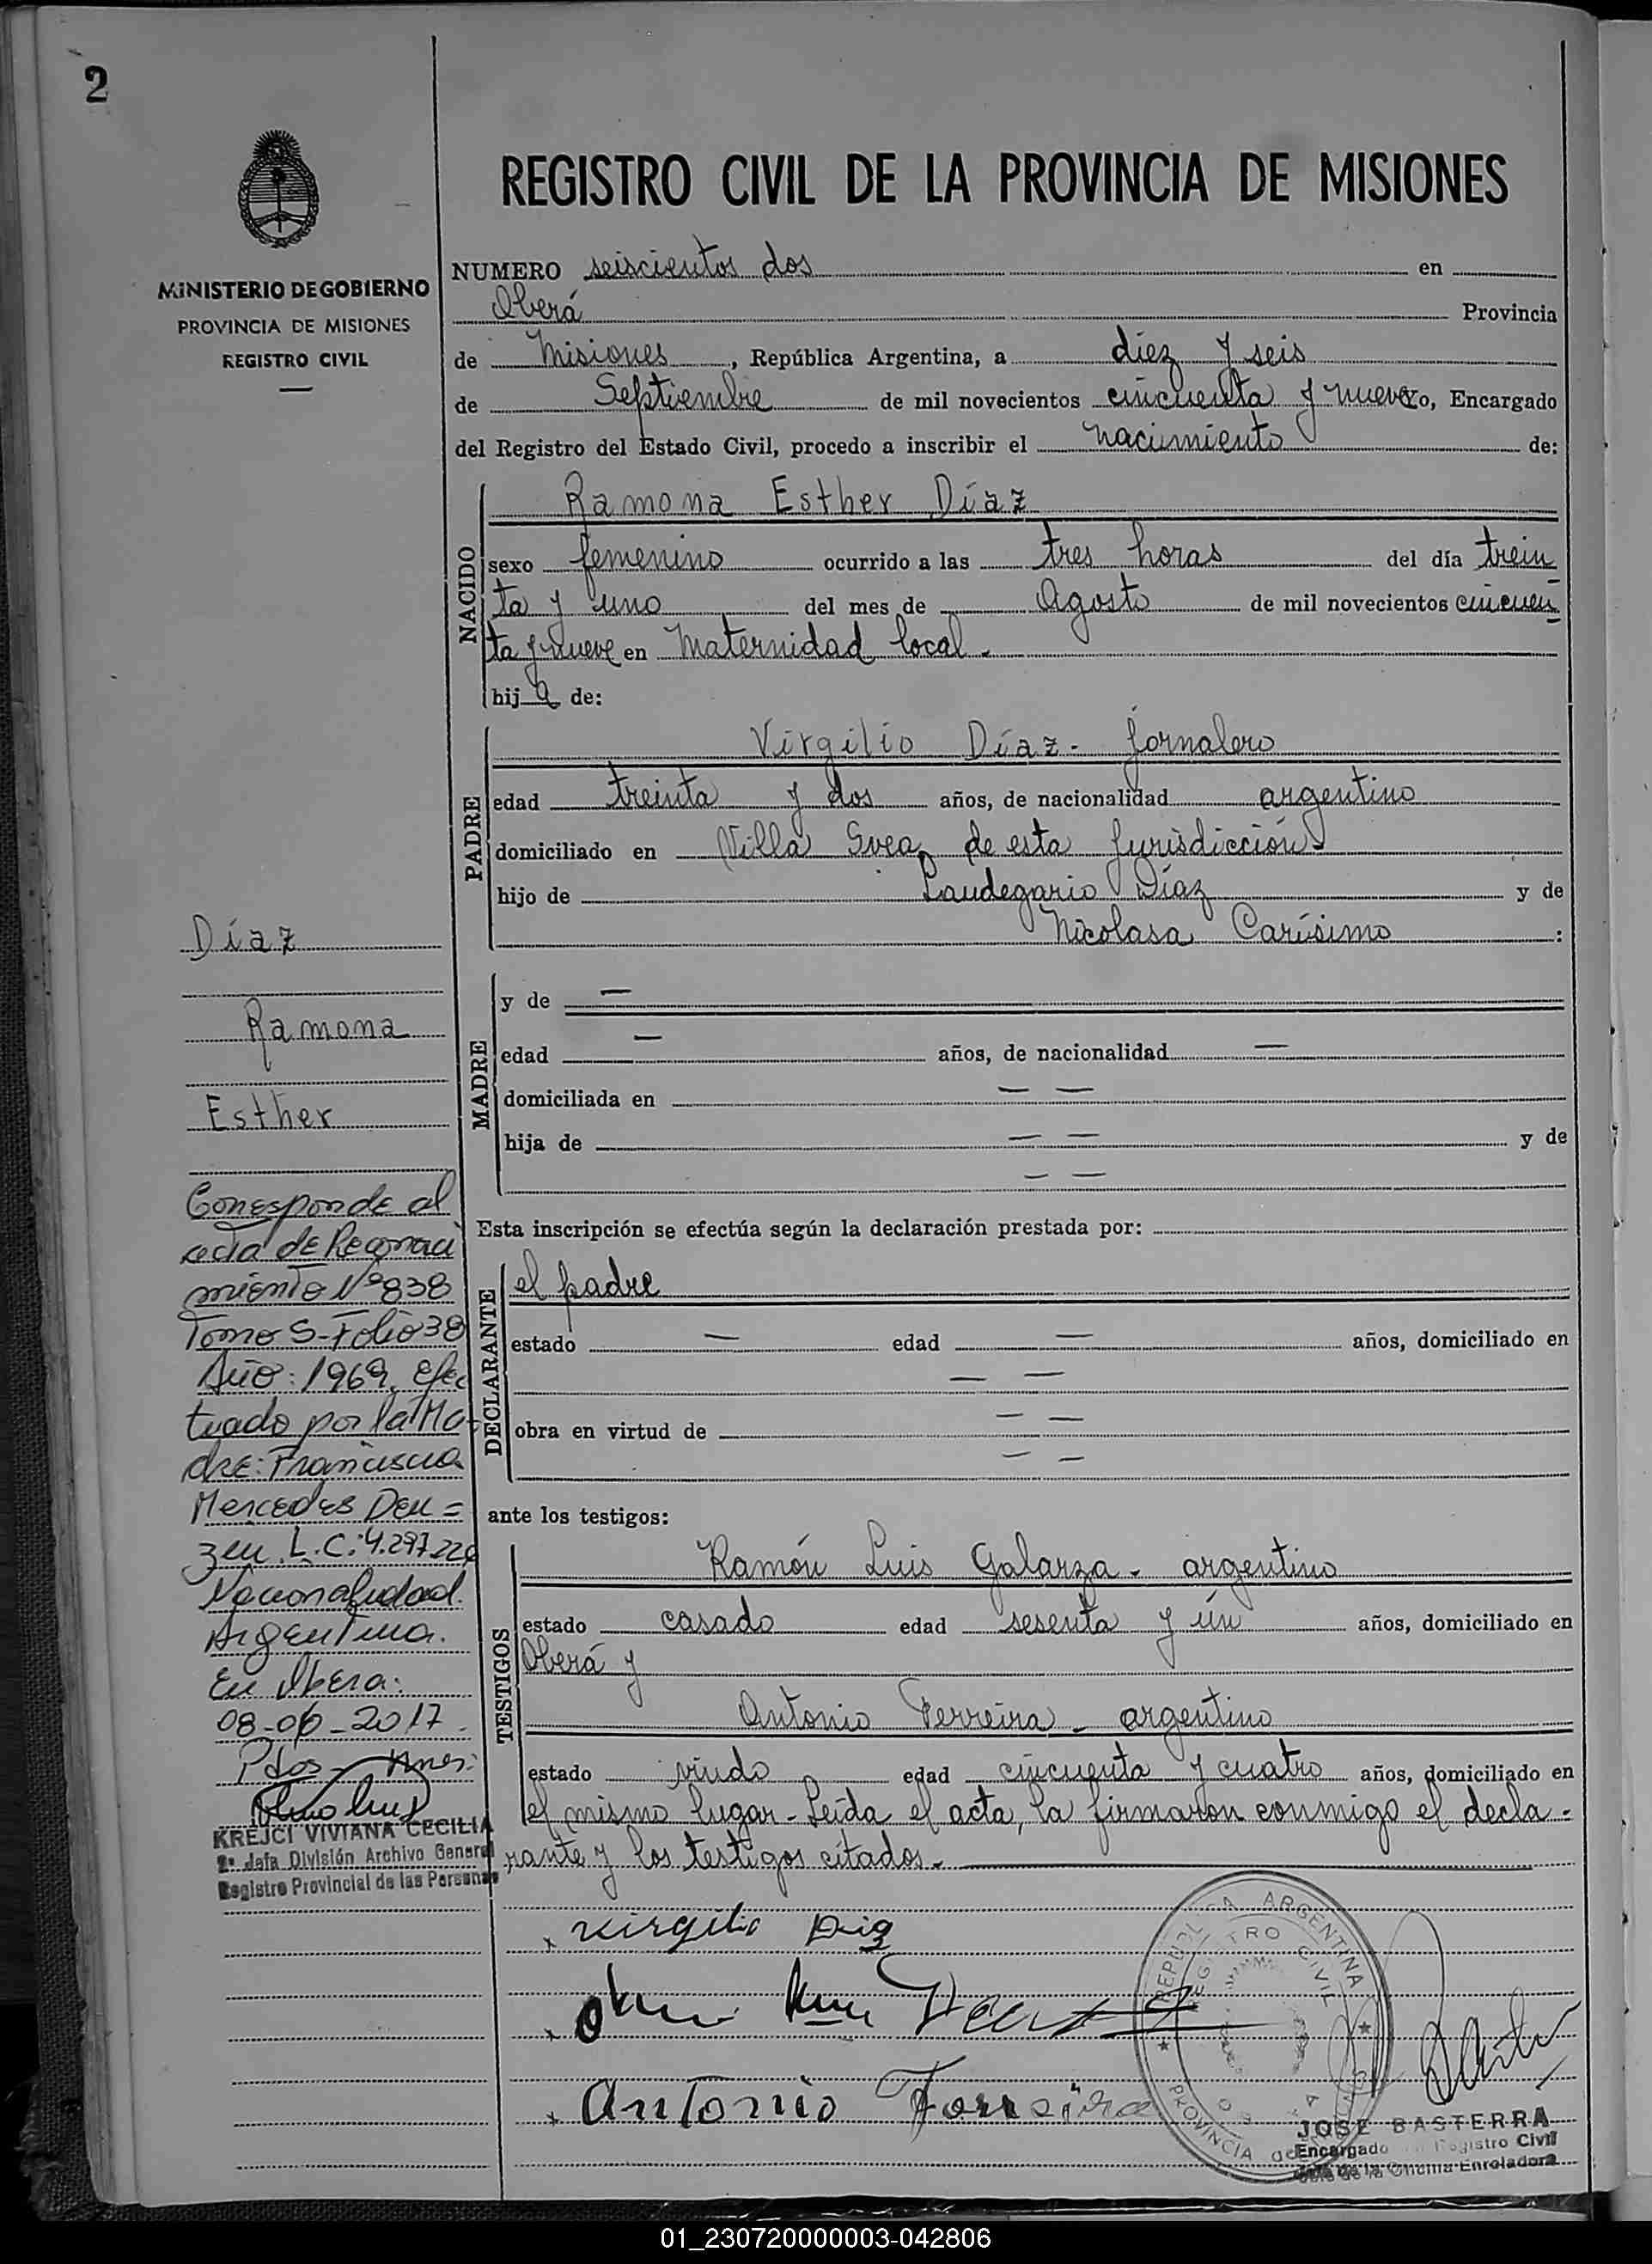 2
MINISTERIO DE GOBIERNO
PROVINCIA DE MISIONES
REGISTRO CIVIL
REGISTRO CIVIL DE LA PROVINCIA DE MISIONES
NUMERO seiscientos dos en
Oberá Provincia
de Misiones, República Argentina, a diez y seis
de Septiembre de mil novecientos cincuenta y nueve, Encargado
del Registro del Estado Civil, procedo a inscribir el nacimiento de:
NACIDO
Ramona Esther Díaz
sexo femenino ocurrido a las tres horas del día trein
ta y uno del mes de Agosto de mil novecientos cincuen
ta y nueve en Maternidad local.
hija de:
PADRE
Virgilio Díaz - Jornalero
edad treinta y dos años, de nacionalidad argentino
domiciliado en Villa Svea, de esta Jurisdicción
hijo de Laudegario Díaz y de
Nicolasa Carísimo :
MADRE
y de —
edad — años, de nacionalidad —
domiciliada en — —
hija de — — y de
— —
Esta inscripción se efectúa según la declaración prestada por:
DECLARANTE
el padre
estado — edad — años, domiciliado en
— —
obra en virtud de — —
— —
ante los testigos:
TESTIGOS
Ramón Luis Galarza - argentino
estado casado edad sesenta y ún años, domiciliado en
Oberá y
Antonio Ferreira - argentino
estado viudo edad cincuenta y cuatro años, domiciliado en
el mismo lugar - Leída el acta, la firmaron conmigo el decla-
rante y los testigos citados.
Virgilio Diaz
Antonio Ferreira
REPUBLICA ARGENTINA
REGISTRO CIVIL
PROVINCIA DE MISIONES
JOSE BASTERRA
Encargado Registro Civil
Jefe de la Oficina Enroladora
Díaz
Ramona
Esther
Corresponde al
acta de Reconoci
miento Nº 838
Tomo 5-Folio 38
Año: 1969, efec
tuado por la Ma-
dre: Francisca
Mercedes Deu=
zeu. L.C: 4.297.226
Nacionalidad
Argentina.
En Oberá:
08-06-2017
KREJCI VIVIANA CECILIA
2ª Jefa División Archivo General
Registro Provincial de las Personas
01_230720000003-042806